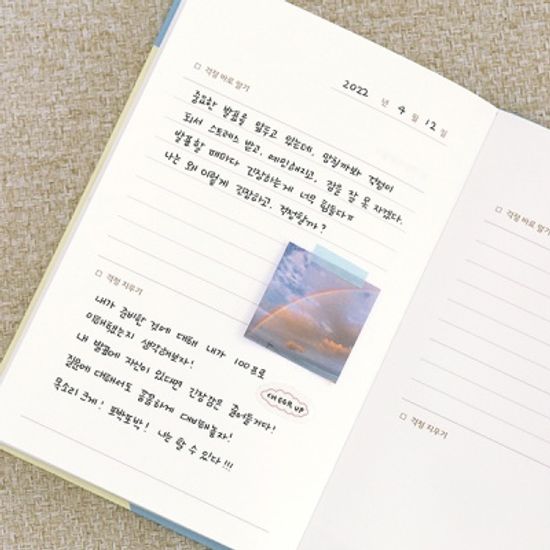 2022 년 4 월 12 일
걱정 바로 알기
중요한 발표를 앞두고 있는데, 망칠까봐 걱정이
되서 스트레스 받고, 예민해지고, 잠을 잘 못 자겠다.
발표할 때마다 긴장하는게 너무 힘들다ㅠ
나는 왜 이렇게 긴장하고, 걱정할까?
걱정 지우기
내가 준비한 것에 대해 내가 100프로
이해했는지 생각해보자!
내 발표에 자신이 있다면 긴장감은 줄어들거다!
질문에 대해서도 꼼꼼하게 대비해놓자!
목소리 크게! 또박또박! 나는 할 수 있다!!!
CHEER UP
걱정 바로 알기
걱정 지우기